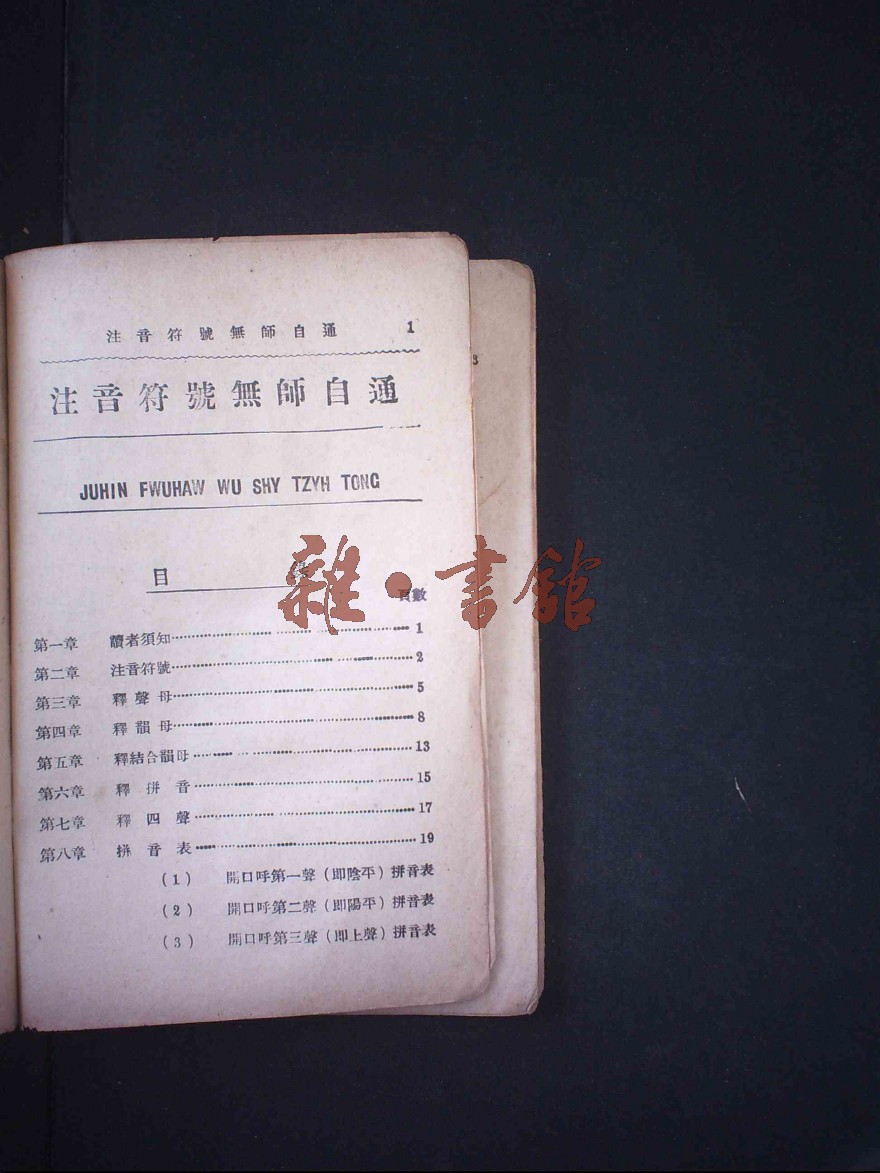 注音符號無師自通 1
注音符號無師自通
JUHIN FWUHAW WU SHY TZYH TONG
目
雜·書館
頁數
第一章 讀者須知 1
第二章 注音符號 2
第三章 釋聲母 5
第四章 釋韻母 8
第五章 釋結合韻母 13
第六章 釋拼音 15
第七章 釋四聲 17
第八章 拼音表 19
(1) 開口呼第一聲(即陰平)拼音表
(2) 開口呼第二聲(即陽平)拼音表
(3) 開口呼第三聲(即上聲)拼音表
3